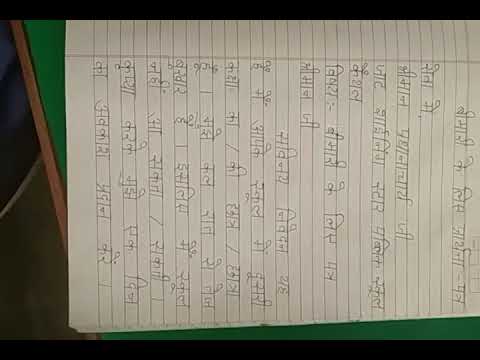 बीमारी के लिए प्रार्थना पत्र
सेवा में,
श्रीमान प्रधानाचार्या जी
जाट शाईनिंग स्टार पब्लिक स्कूल
कैथल
विषय:- बीमारी के लिए पत्र
श्रीमान जी
सविनय निवेदन यह
है मैं आपके स्कूल में दूसरी
कक्षा का / की छात्र / छात्रा
हूँ। मुझे कल रात से तेज
बुखार है। इसलिए मैं स्कूल
नहीं आ सकता / सकती।
कृप्या करके मुझे एक दिन
का अवकाश प्रदान करें।